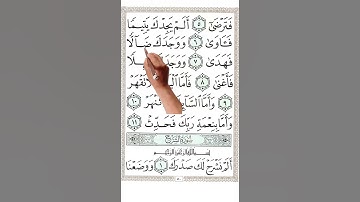 فَتَرْضَىٰٓ ٥ أَلَمْ يَجِدْكَ يَتِيمًا
فَـَٔاوَىٰ ٦ وَوَجَدَكَ ضَآلًّا
فَهَدَىٰ ٧ وَوَجَدَ
فَأَغْنَىٰ ٨ فَأَمَّا تَقْهَرْ
٩ وَأَمَّا ٱلسَّآئِلَ تَنْهَرْ ١٠
وَأَمَّا بِنِعْمَةِ رَبِّكَ فَحَدِّثْ ١١
سُورَةُ الشَّرْحِ
بِسْمِ ٱللَّهِ ٱلرَّحْمَٰنِ ٱلرَّحِيمِ
أَلَمْ نَشْرَحْ لَكَ صَدْرَكَ ١ وَوَضَعْنَا